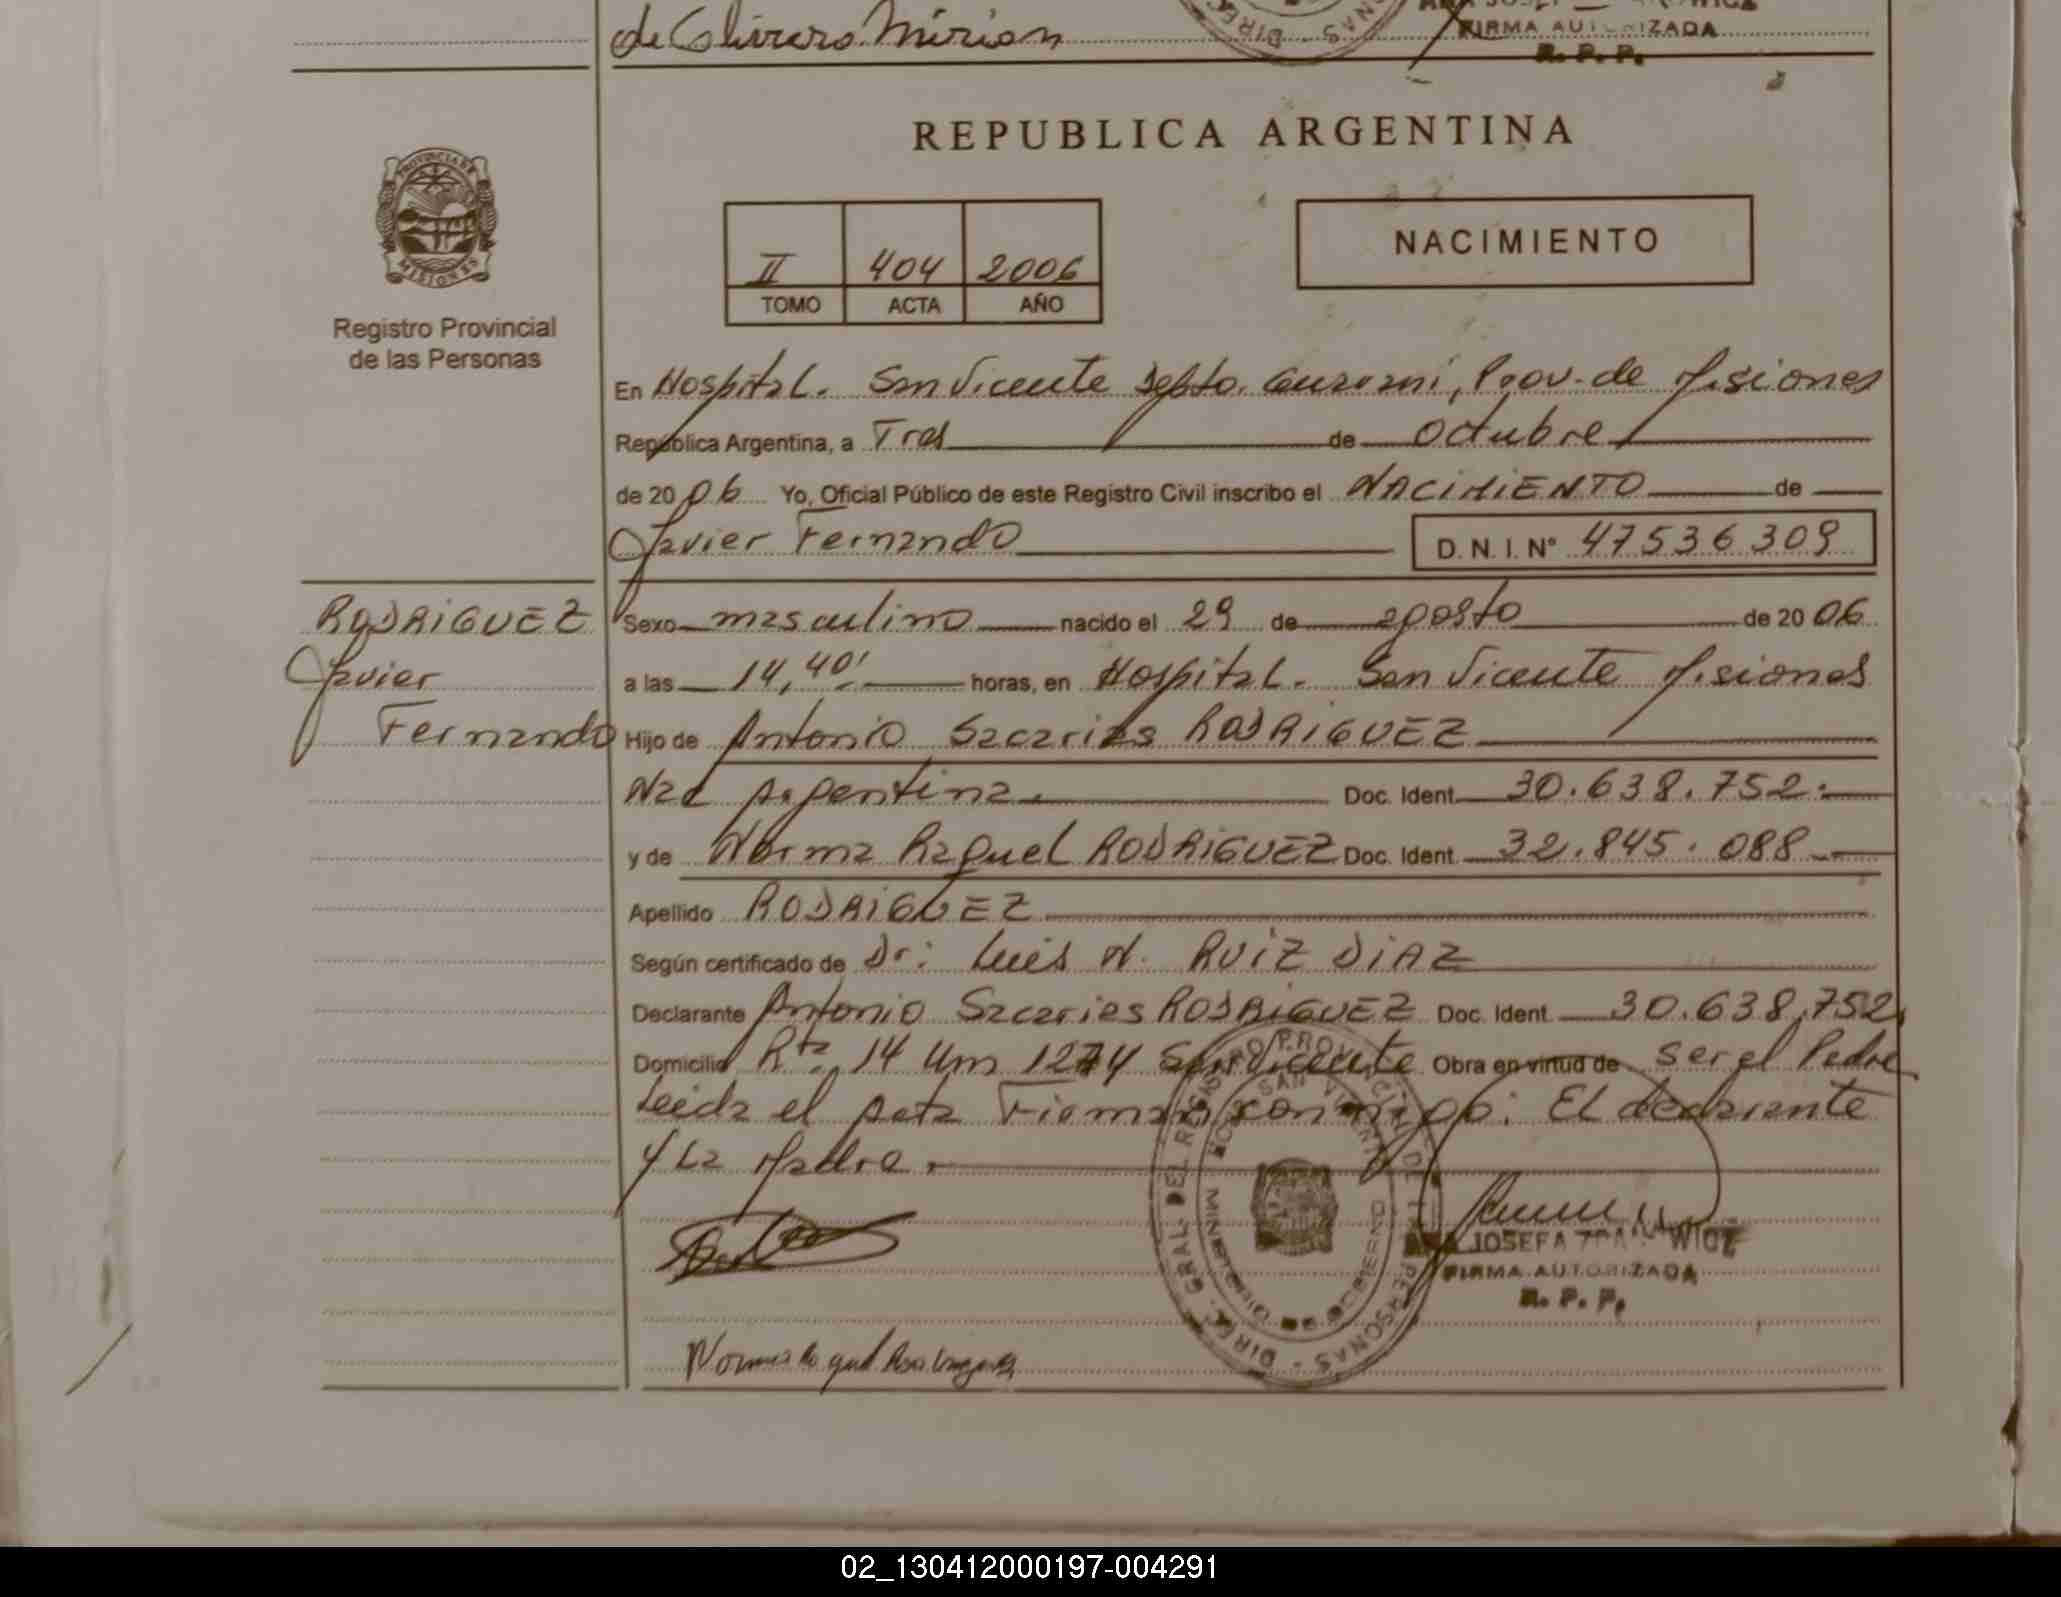 de Olivera Mirian
FIRMA AUTORIZADA
R. P. P.
REPUBLICA ARGENTINA
PROVINCIA DE MISIONES
Registro Provincial
de las Personas
II 404 2006
TOMO ACTA AÑO
NACIMIENTO
En Hospital. San Vicente Depto. Guarani, Prov. de Misiones
República Argentina, a Tres de Octubre
de 2006 Yo, Oficial Público de este Registro Civil inscribo el NACIMIENTO de
Javier Fernando D. N. I. Nº 47536309
RODRIGUEZ
Javier
Fernando
Sexo masculino nacido el 29 de agosto de 2006
a las 14,40' horas, en Hospital. San Vicente Misiones
Hijo de Antonio Sacarias RODRIGUEZ
Nac Argentina. Doc. Ident. 30.638.752.
y de Norma Raquel RODRIGUEZ Doc. Ident. 32.845.088
Apellido RODRIGUEZ
Según certificado de Dr: Luis N. RUIZ DIAZ
Declarante Antonio Sacarias RODRIGUEZ Doc. Ident. 30.638.752
Domicilio Rta. 14 Km 1274 San Vicente Obra en virtud de ser el Padre
Leida el acta Firman conmigo: El declarante
y La Madre.
DIREC. GRAL. DEL REGISTRO PROVINCIAL DE LAS PERSONAS
SAN VICENTE
JOSEFA
FIRMA AUTORIZADA
R. P. P.
Norma Raquel Rodriguez
02_130412000197-004291